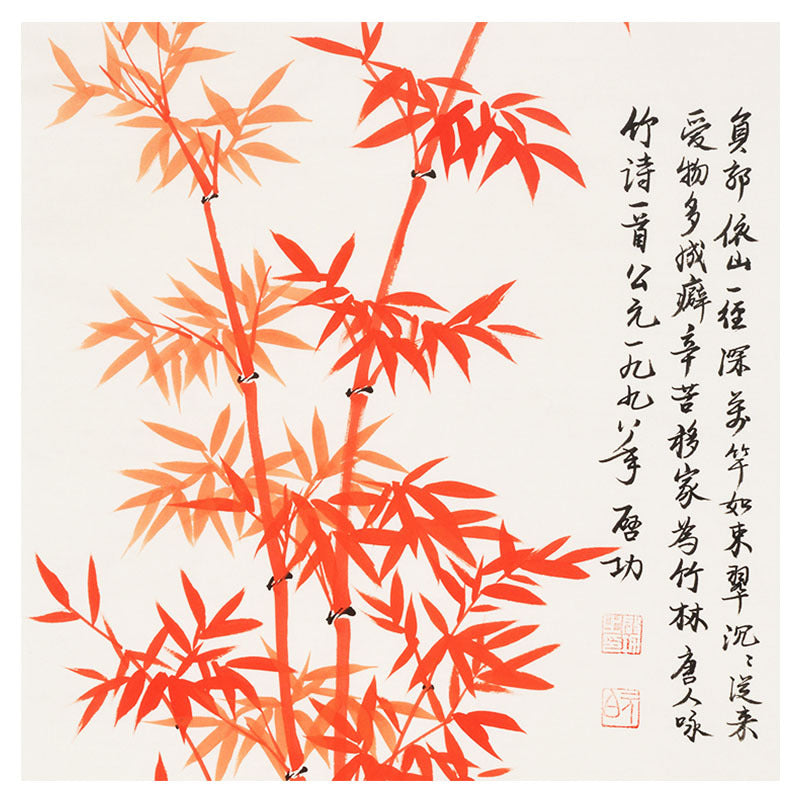 負郭依山一徑深萬竿如束翠沉〻從来
愛物多成癖辛苦移家為竹林唐人咏
竹詩一首公元一九九八年 启功
元白